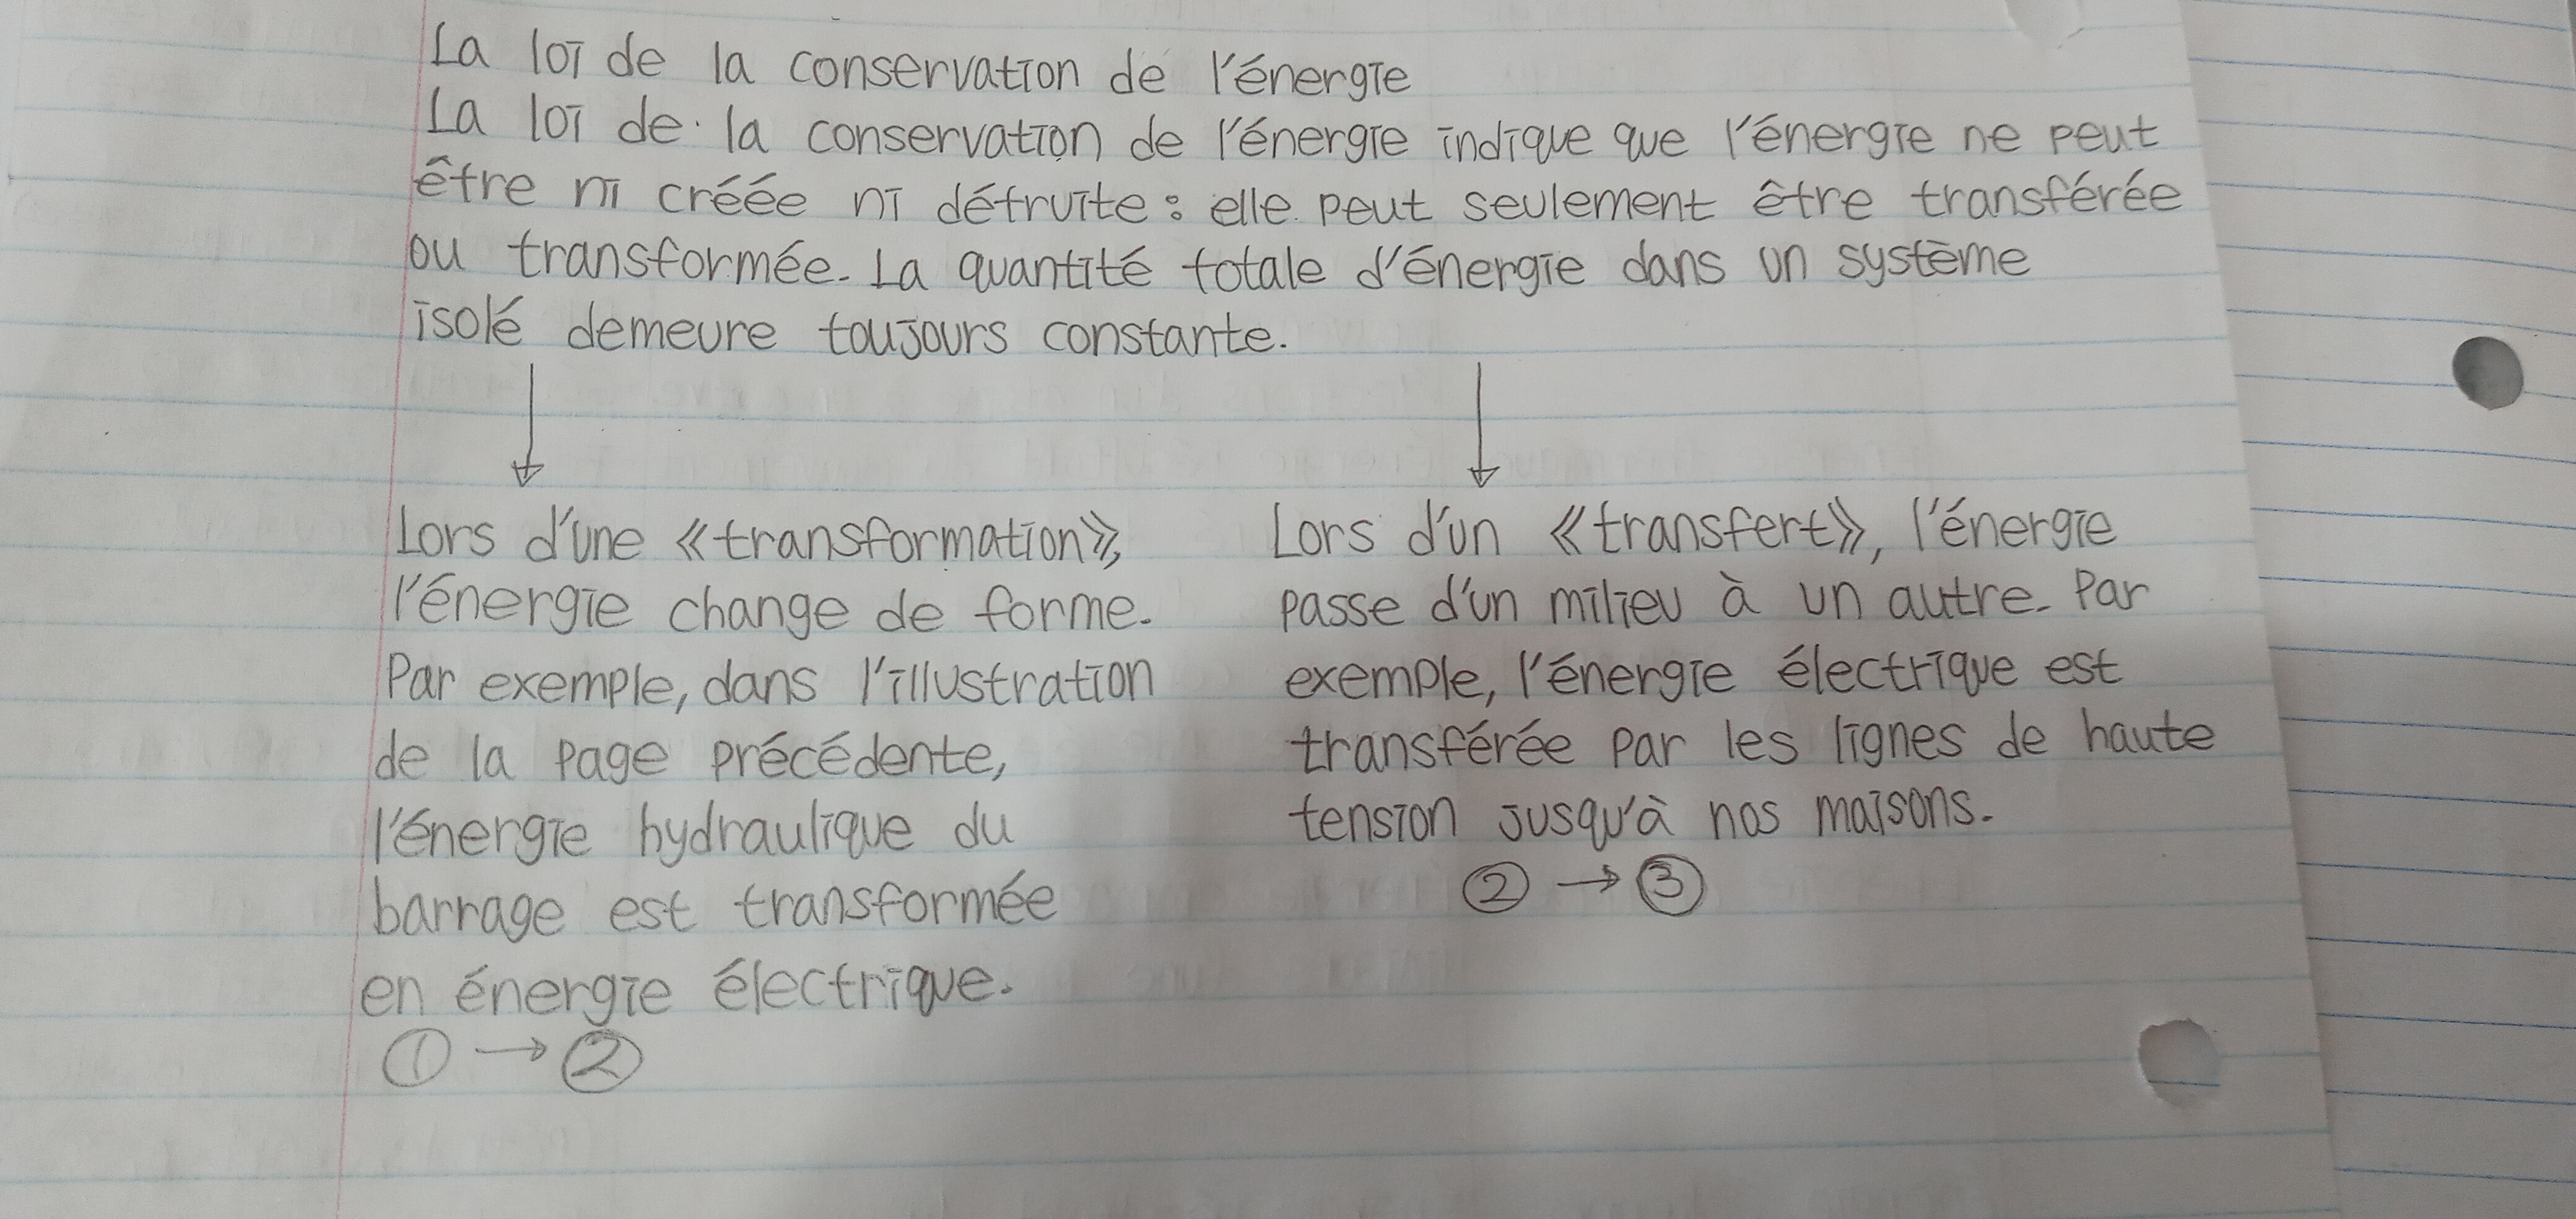 La loi de la conservation de l'énergie
La loi de la conservation de l'énergie indique que l'énergie ne peut
être ni créée ni détruite : elle peut seulement être transférée
ou transformée. La quantité totale d'énergie dans un système
isolé demeure toujours constante.
Lors d'une «transformation»,
l'énergie change de forme.
Par exemple, dans l'illustration
de la page précédente,
l'énergie hydraulique du
barrage est transformée
en énergie électrique.
① → ②
Lors d'un «transfert», l'énergie
passe d'un milieu à un autre. Par
exemple, l'énergie électrique est
transférée par les lignes de haute
tension jusqu'à nos maisons.
② → ③